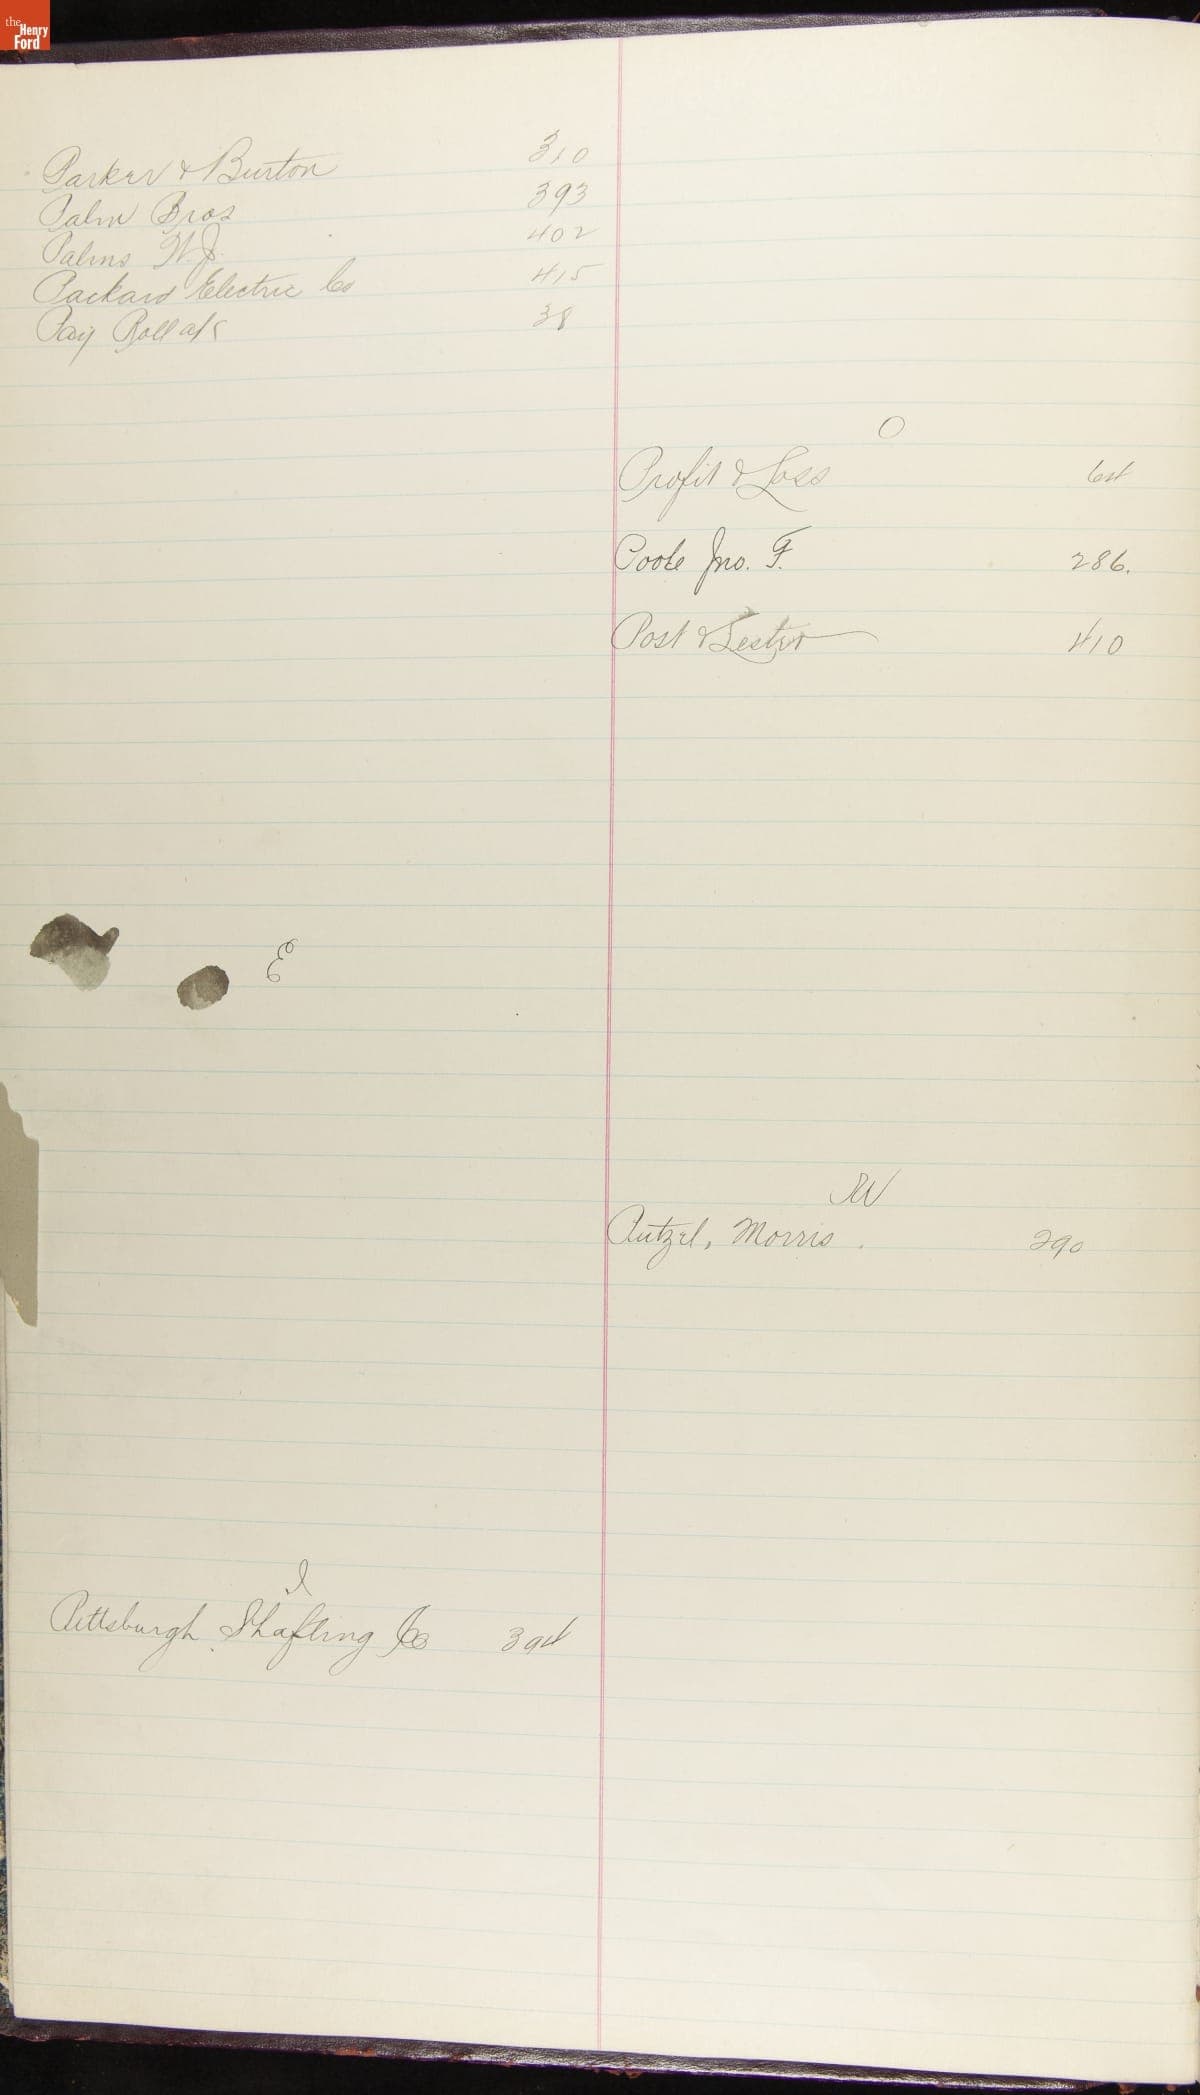 the Henry Ford
Parker & Burton 310
Palm Bros 393
Palms 402
Packard Electric Co 415
Pay Roll a/c 38
E
I
Pittsburgh Shafting Co 394
O
Profit & Loss 64
Poole Jno. F. 286.
Post & Lester 410
Putzel, Morris. 290